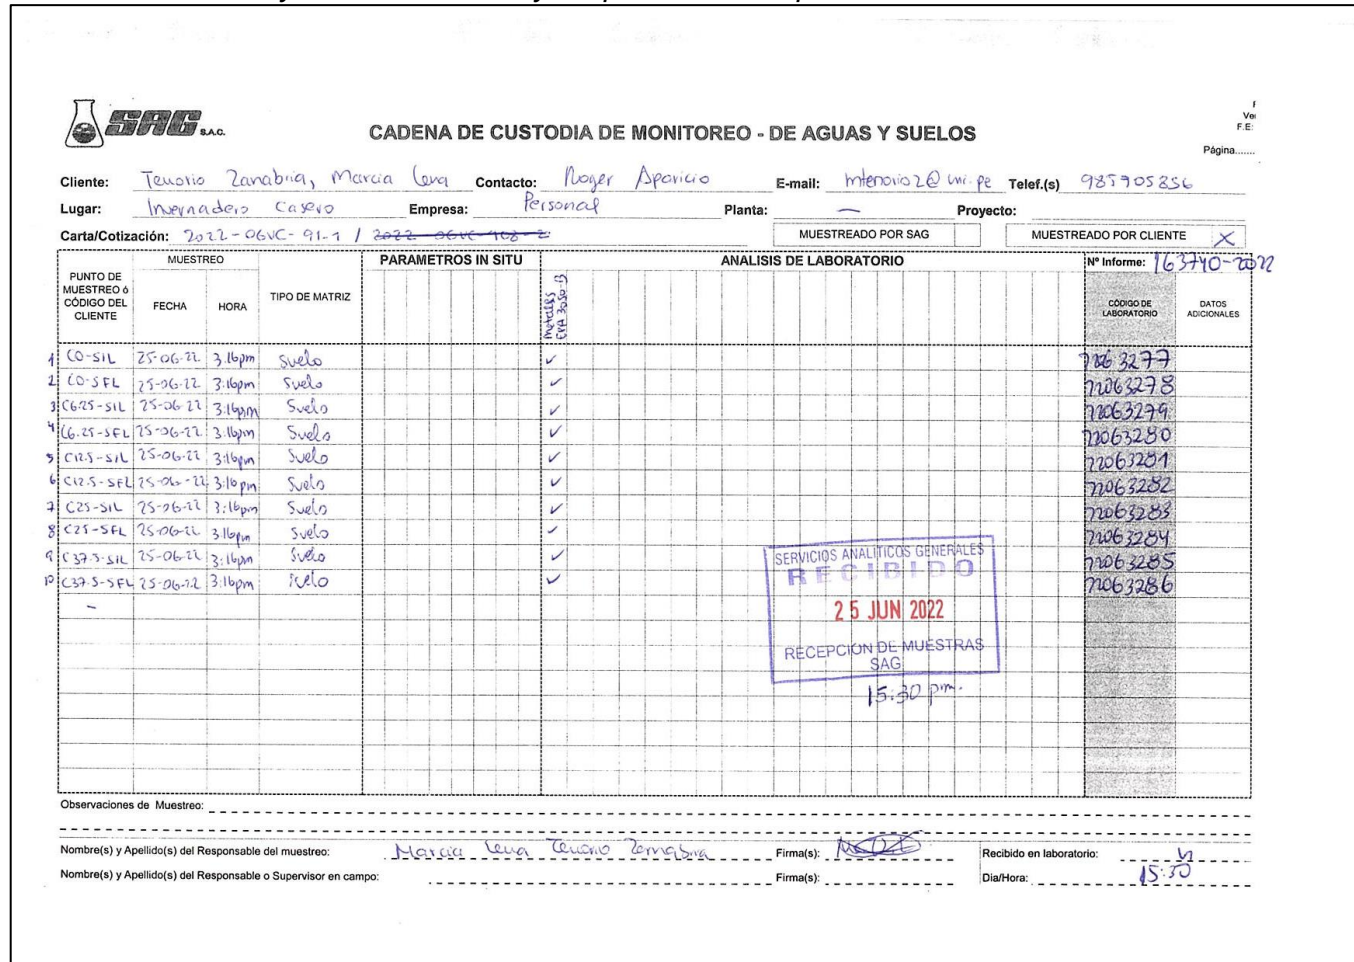 SAG S.A.C.
CADENA DE CUSTODIA DE MONITOREO - DE AGUAS Y SUELOS
F.E:
Página.......
Cliente: Tenorio Zanabria, Marcia Lena Contacto: Roger Aparicio E-mail: mtenorioz@uni.pe Telef.(s) 985905856
Lugar: Invernadero Casero Empresa: Personal Planta: — Proyecto:
Carta/Cotización: 2022-06VC-91-1 / MUESTREADO POR SAG MUESTREADO POR CLIENTE X
MUESTREO PARAMETROS IN SITU ANALISIS DE LABORATORIO Nº Informe: 163740-2022
PUNTO DE MUESTREO ó CÓDIGO DEL CLIENTE FECHA HORA TIPO DE MATRIZ Metales EPA 3050-B CÓDIGO DE LABORATORIO DATOS ADICIONALES
1 C0-SIL 25-06-22 3:16pm Suelo ✓ 22063277
2 C0-SFL 25-06-22 3:16pm Suelo ✓ 22063278
3 C6.25-SIL 25-06-22 3:16pm Suelo ✓ 22063279
4 C6.25-SFL 25-06-22 3:16pm Suelo ✓ 22063280
5 C12.5-SIL 25-06-22 3:16pm Suelo ✓ 22063281
6 C12.5-SFL 25-06-22 3:16pm Suelo ✓ 22063282
7 C25-SIL 25-06-22 3:16pm Suelo ✓ 22063283
8 C25-SFL 25-06-22 3:16pm Suelo ✓ 22063284
9 C37.5-SIL 25-06-22 3:16pm Suelo ✓ 22063285
10 C37.5-SFL 25-06-22 3:16pm Suelo ✓ 22063286
SERVICIOS ANALITICOS GENERALES
RECIBIDO
25 JUN 2022
RECEPCION DE MUESTRAS
SAG
15:30 pm.
Observaciones de Muestreo:
Nombre(s) y Apellido(s) del Responsable del muestreo: Marcia Lena Tenorio Zanabria Firma(s): Recibido en laboratorio:
Nombre(s) y Apellido(s) del Responsable o Supervisor en campo: Firma(s): Dia/Hora: 15:30